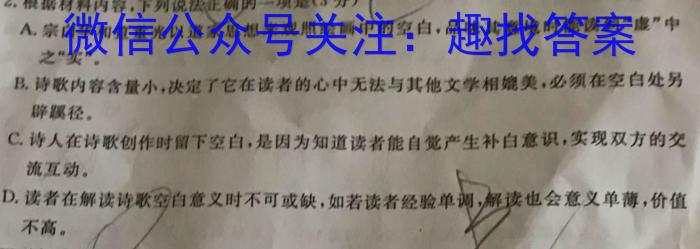 2. 根据材料内容,下列说法正确的一项是(3分)
微信公众号关注：趣找答案
A. 宗白 空白, "虚"中
之"实"。
B. 诗歌内容含量小,决定了它在读者的心中无法与其他文学相媲美,必须在空白处另
辟蹊径。
C. 诗人在诗歌创作时留下空白,是因为知道读者能自觉产生补白意识,实现双方的交
流互动。
D. 读者在解读诗歌空白意义时不可或缺,如若读者经验单调,解读也会意义单薄,价值
不高。